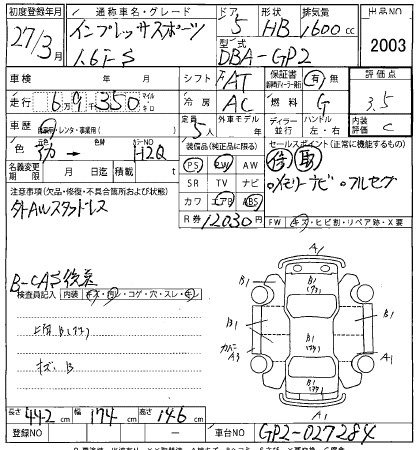 初度登録年月
27/3月
通称車名・グレード
インプレッサスポーツ
1.6i-S
ドア 5
形状 HB
排気量 1600 cc
型式
DBA-GP2
出品NO
2003
車検
年 月
シフト FAT
保証書
有 無
評価点
3.5
走行 6万9千350 マイル キロ
冷房 AC
燃料 G
車歴
自家用・レンタ・事業用( )
定員 5人
外車モデル 年
ディーラー 並行
ハンドル 左・右
内装評価 C
色
元色
色替
カラーNO H2Q
装備品(純正品に限る)
セールスポイント(正常に機能するもの)
名義変更期限
月 日迄
積載量 t
PS PW AW
SR TV ナビ
カワ エアB ABS
R券 12030 円
保 取
○メモリーナビ ○フルセグ
注意事項(欠品・修復・不具合箇所および状態)
社外AWスタッドレス
B-CAS後送
FW キズ・ヒビ割・リペア跡・X要
検査員記入
内装 キズ・汚レ・コゲ・穴・スレ・キレ
キズ・B
A1
B1
B1
B1
B1
A3
A1
長さ 442 cm
幅 174 cm
高さ 146 cm
登録NO
車台NO GP2-027284